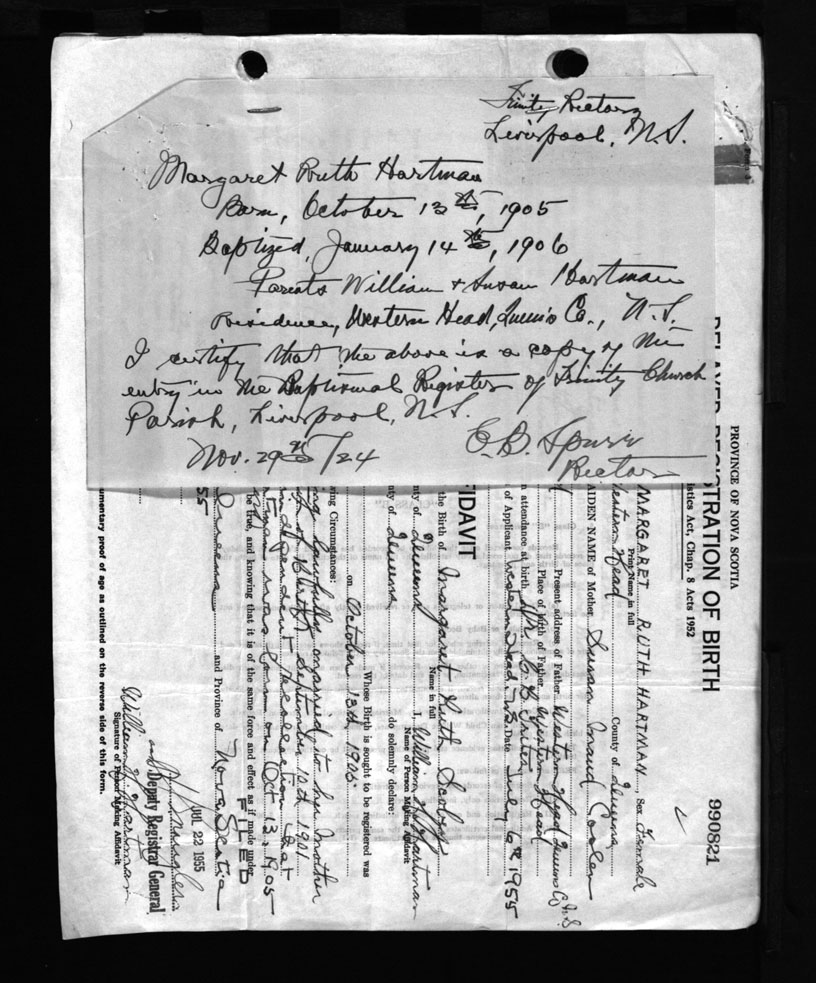 Trinity Rectory
Liverpool, N.S.
Margaret Ruth Hartman
Born, October 13th, 1905
Baptized, January 14th, 1906
Parents William + Susan Hartman
Residence, Western Head, Queens Co., N.S.
I certify that the above is a copy of the
entry in the Baptismal Register of Trinity Church
Parish, Liverpool, N.S.
Nov. 29th/24
Rector
PROVINCE OF NOVA SCOTIA
DELAYED REGISTRATION OF BIRTH
istics Act, Chap. 8 Acts 1952
990821
MARGARET RUTH HARTMAN, Sex Female
Print Name in full
Western Head County of Queens
AIDEN NAME of Mother Susan Maud
Present address of Father Western Head Queens Co. N.S.
Place of birth of Father Western Head
n attendance at birth Dr.
of Applicant Western Head N.S. Date July 6th 1955
FIDAVIT
the Birth of Margaret Ruth
Name in full
nty of Queens I, William H Hartman
Name of Person Making Affidavit
nty of Queens do solemnly declare:
Whose Birth is sought to be registered was
on October 13th 1905
ing Circumstances:
ng lawfully married to her Mother
of Birth September 10th 1901
independent recollection that
was born on Oct 13, 1905
be true, and knowing that it is of the same force and effect as if made under
FILED
Queens and Province of Nova Scotia
55
JUL 22 1955
Deputy Registrar General
William H. Hartman
Signature of Person Making Affidavit
umentary proof of age as outlined on the reverse side of this form.